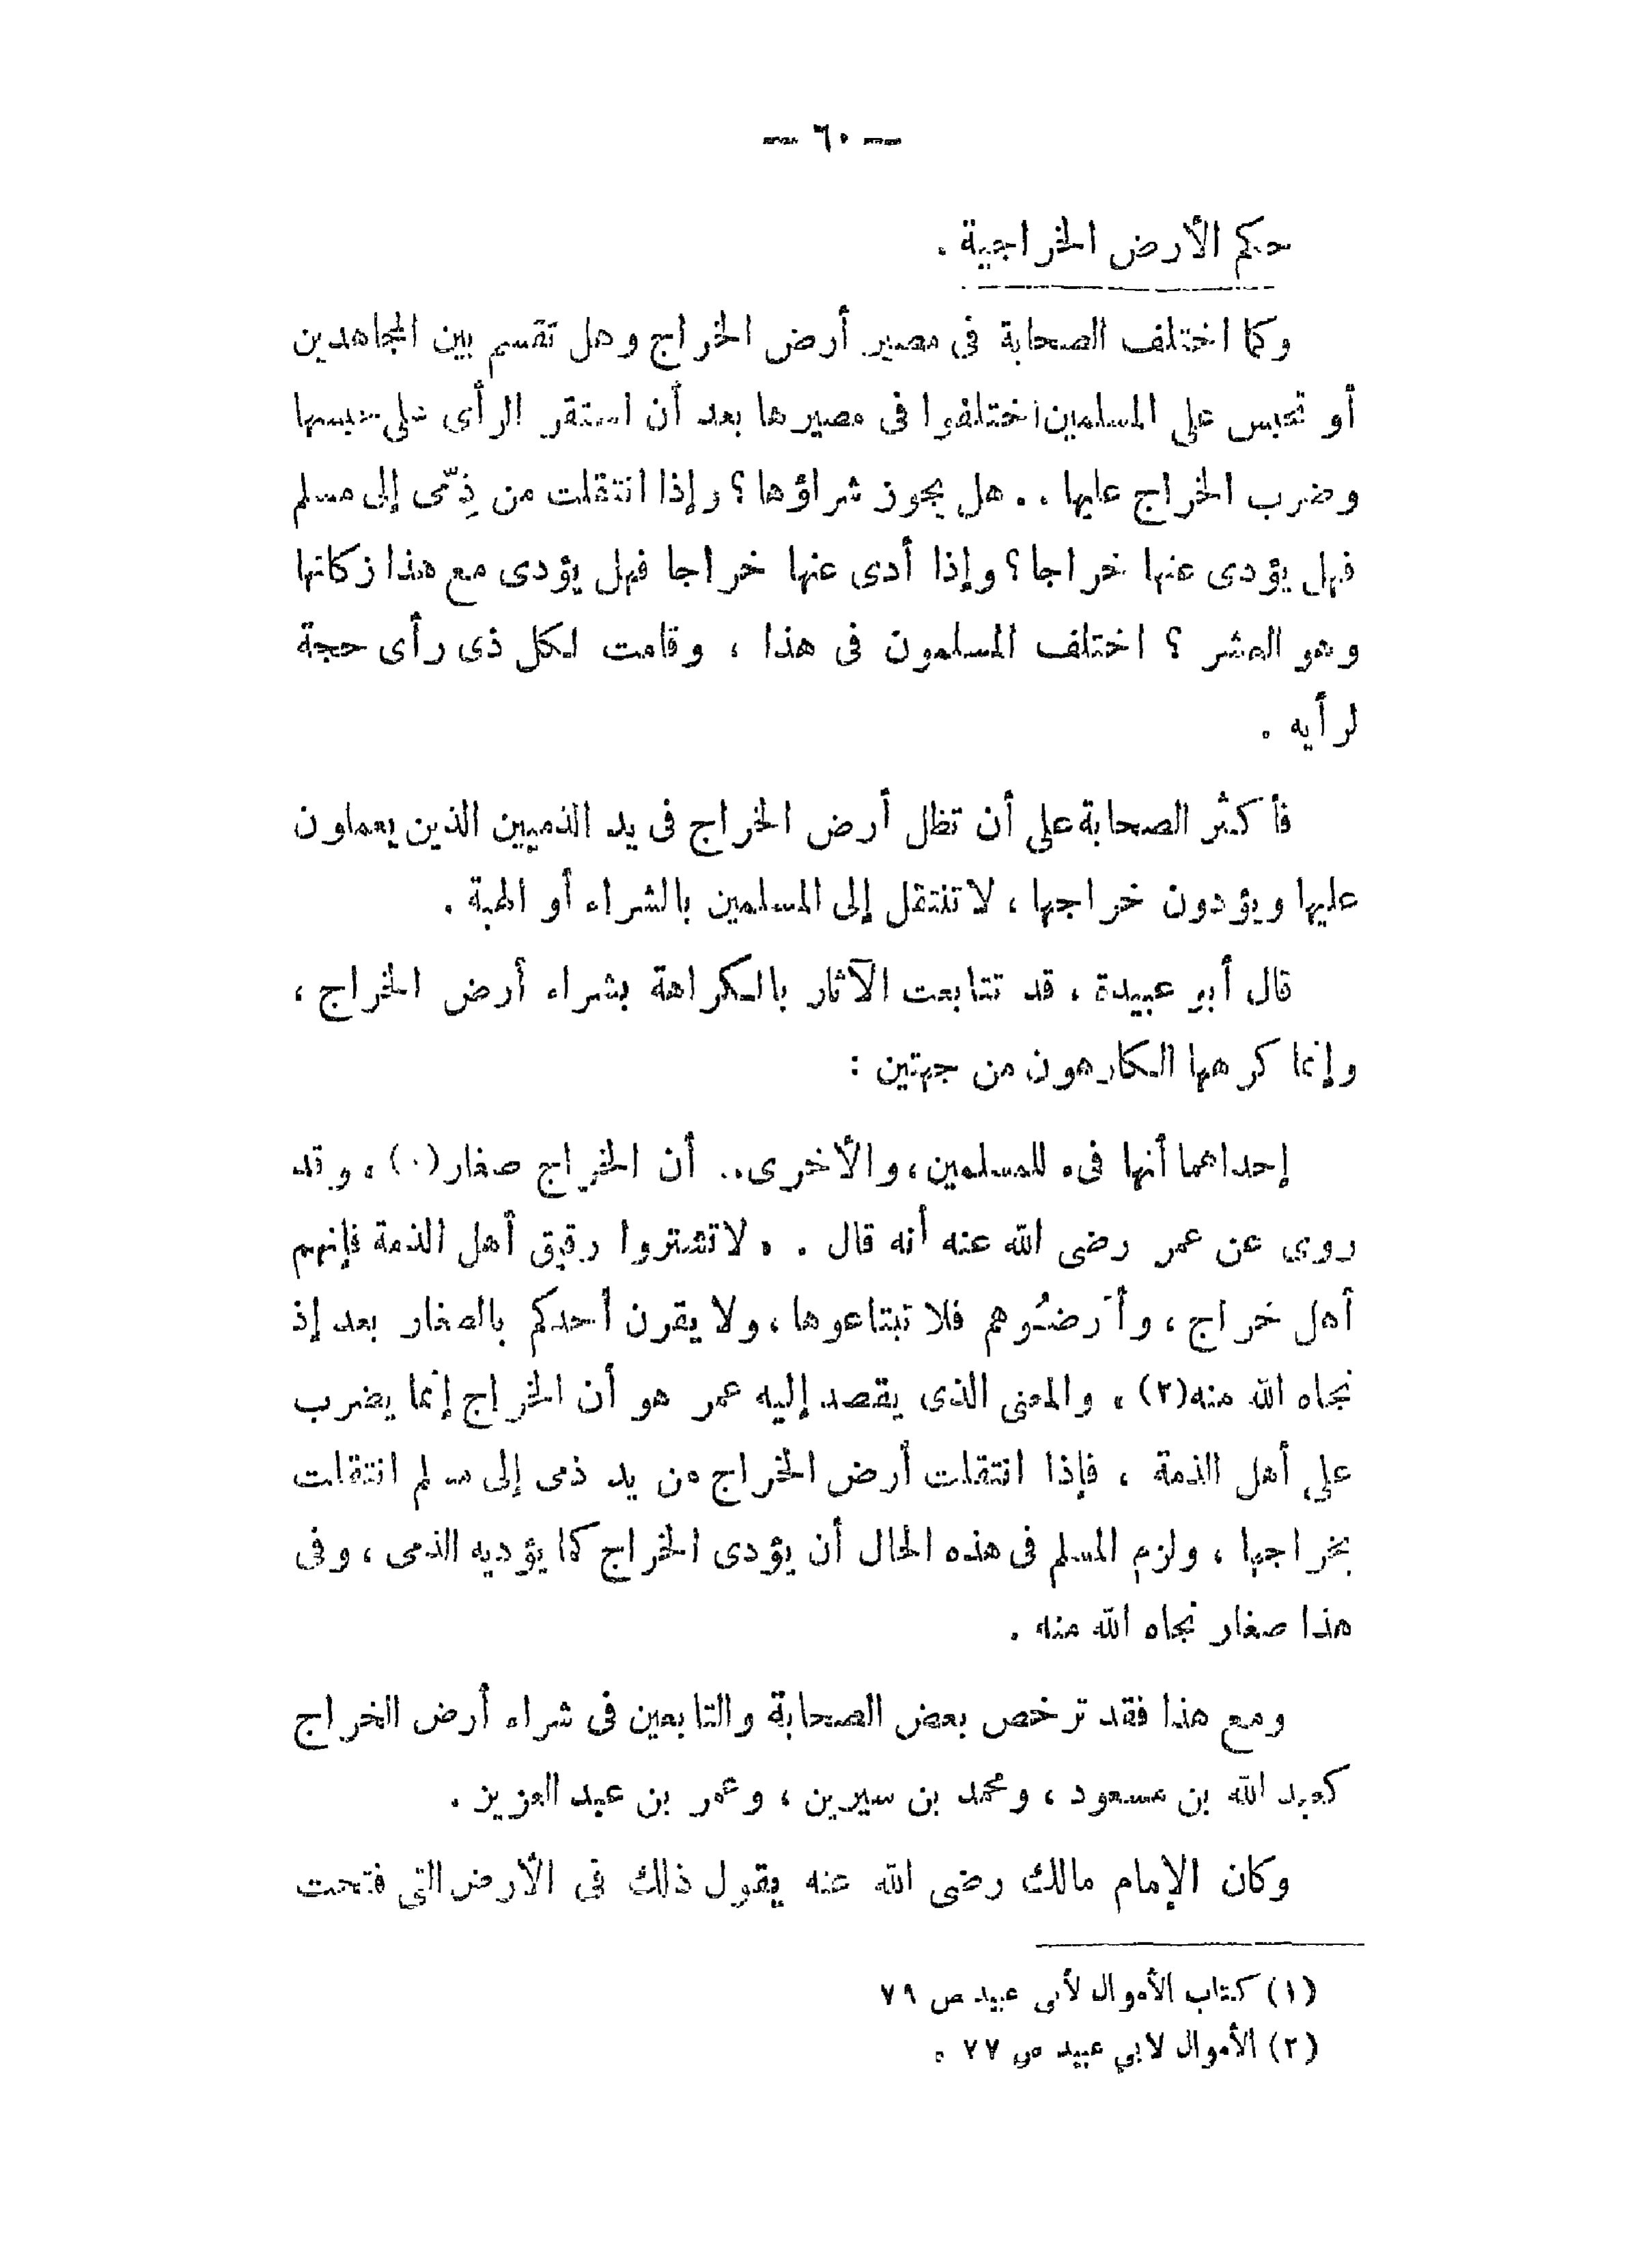 — ٦٠ —
حكم الأرض الخراجية .
وكما اختلف الصحابة فى مصير أرض الخراج وهل تقسم بين المجاهدين
أو تحبس على المسلمين اختلفوا فى مصيرها بعد أن استقر الرأى على حبسها
وضرب الخراج عليها . . هل يجوز شراؤها ؟ وإذا انتقلت من ذِمّى إلى مسلم
فهل يؤدى عنها خراجا ؟ وإذا أدى عنها خراجا فهل يؤدى مع هذا زكاتها
وهو العشر ؟ اختلف المسلمون فى هذا ، وقامت لكل ذى رأى حجة
لرأيه .
فأكثر الصحابة على أن تظل أرض الخراج فى يد الذميين الذين يعملون
عليها ويؤدون خراجها ، لا تنتقل إلى المسلمين بالشراء أو الهبة .
قال أبو عبيدة ، قد تتابعت الآثار بالكراهة بشراء أرض الخراج ،
وإنما كرهها الكارهون من جهتين :
إحداهما أنها فىء للمسلمين ، والأخرى .. أن الخراج صغار (٠) ، وقد
روى عن عمر رضى الله عنه أنه قال . « لا تشتروا رقيق أهل الذمة فإنهم
أهل خراج ، وأَرضُوهم فلا تبتاعوها ، ولا يقرن أحدكم بالصغار بعد إذ
نجاه الله منه (٢) ، والمعنى الذى يقصد إليه عمر هو أن الخراج إنما يضرب
على أهل الذمة ، فإذا انتقلت أرض الخراج من يد ذمى إلى مسلم انتقلت
بخراجها ، ولزم المسلم فى هذه الحال أن يؤدى الخراج كما يؤديه الذمى ، وفى
هذا صغار نجاه الله منه .
ومع هذا فقد ترخص بعض الصحابة والتابعين فى شراء أرض الخراج
كعبد الله بن مسعود ، ومحمد بن سيرين ، وعمر بن عبد العزيز .
وكان الإمام مالك رضى الله عنه يقول ذلك فى الأرض التى فتحت
(١) كتاب الأموال لأبى عبيد ص ٧٩
(٢) الأموال لابي عبيد ص ٧٧ .